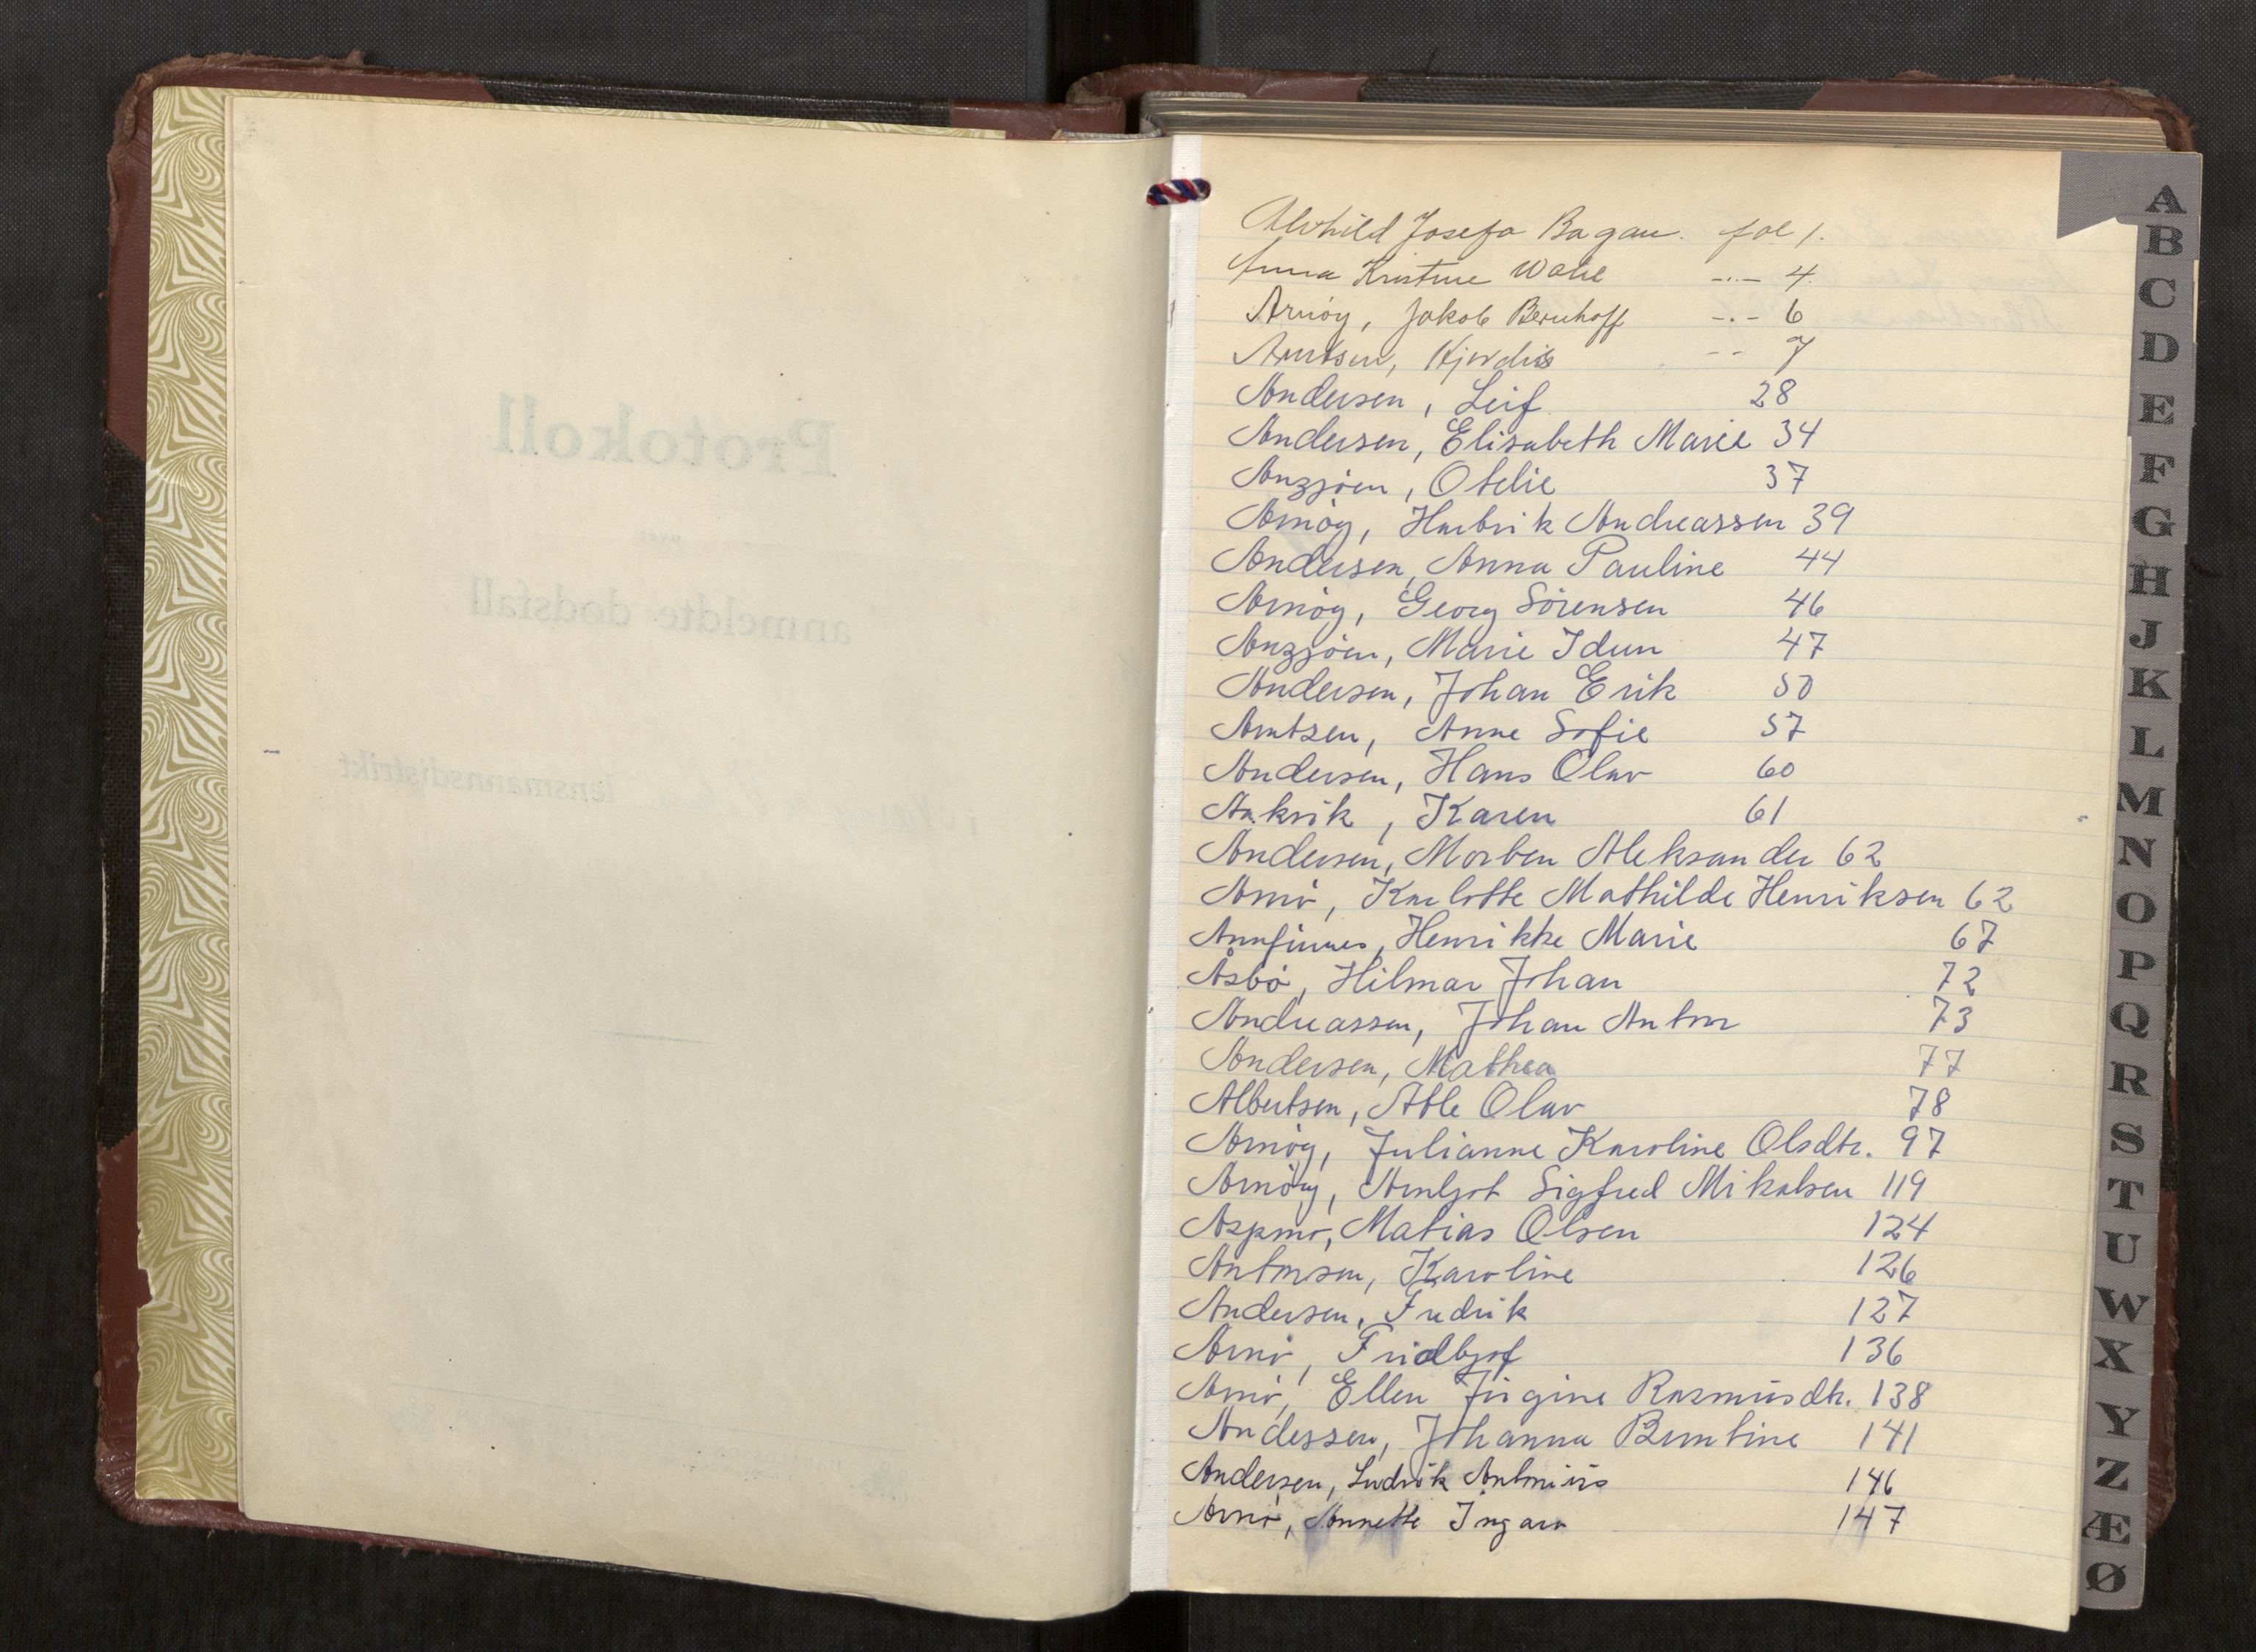 Protokoll
over
anmeldte dødsfall
i lensmannsdistrikt
Alvhild Josefa Bagøu. fol 1.
Anna Kristine Wahl -..- 4.
Arnøy, Jakob Bernhoff -.- 6
Arntsen, Hjørdis -- 7
Andersen, Leif 28
Andersen, Elisabeth Marie 34
Angsjøen, Otelie 37
Arnøy, Hartvik Andreassen 39
Andersen, Anna Pauline 44
Arnøy, Georg Sørensen 46
Angsjøen, Marie Idun 47
Andersen, Johan Erik 50
Arntzen, Anne Sofie 57
Andersen, Hans Olav 60
Aakvik, Karen 61
Andersen, Morten Aleksander 62
Arnø, Karlotte Mathilde Henriksen 62
Annfinnes, Henrikke Marie 67
Åsbø, Hilmar Johan 72
Andreassen, Johan Anton 73
Andersen, Mathea 77
Albertsen, Atle Olav 78
Arnøy, Julianne Karoline Olsdtr. 97
Arnøy, Arnljot Sigfred Mikalsen 119
Aspmo, Matias Olsen 124
Antonsen, Karoline 126
Andersen, Fredrik 127
Arnø, Fridtjof 136
Arnø, Ellen Jørgine Rasmusdtr. 138
Anderssen, Johanna Berntine 141
Andersen, Ludvik Antonius 146
Arnø, Annette Ingara 147
A
B
C
D
E
F
G
H
J
K
L
M
N
O
P
Q
R
S
T
U
W
X
Y
Z
Æ
Ø